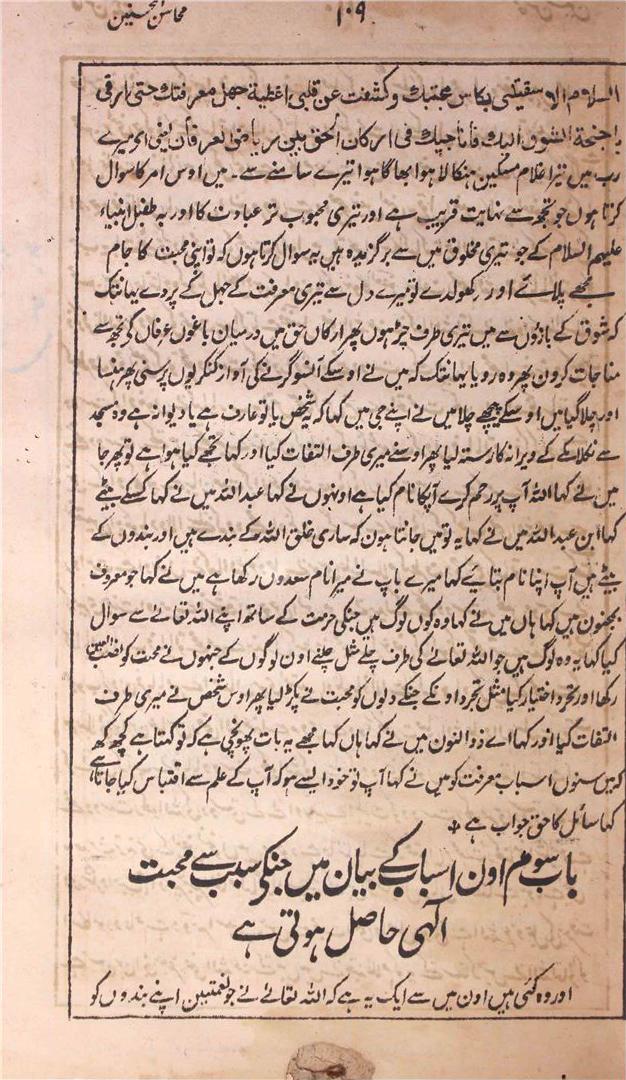 محاسن المحسنین
۱۰۹
السلام الا سقیتنی بکاس محبتک وکشفت عن قلبی اغطیة جهل معرفتک حتی ارقی
باجنحة الشوق الیک فاناجیک فی ارکان الحق بین ریاض العرفان یعنی اے میرے
رب میں تیرا غلام مسکین ہنکالا ہوا بھاگا ہوا تیرے سامنے سے۔ میں اوس امر کا سوال
کرتا ہوں جو تجھ سے نہایت قریب ہے اور تیری محبوب تر عبادت کا اور بہ طفیل انبیاء
علیہم السلام کے جو تیری مخلوق میں سے برگزیدہ ہیں یہ سوال کرتا ہوں کہ تو اپنی محبت کا جام
مجھے پلائے اور کھولدے تو میرے دل سے تیری معرفت کے جہل کے پردے یہانتک
کہ شوق کے بازوں سے میں تیری طرف چڑہوں پھر ارکان حق میں درمیان باغوں عرفان کو تجھ سے
مناجات کرون پھر وہ رویا یہانتک کہ میں نے اوسکے آنسو گرنے کی آواز کنکریوں پر سنی پھر ہنسا
اور چلا گیا میں اوسکے پیچھے چلا میں نے اپنے جی میں کہا کہ یہ شخص یا تو عارف ہے یا دیوانہ ہے وہ مسجد
سے نکلا کے ویرانہ کا رستہ لیا پھر اوسنے میری طرف التفات کیا اور کہا تجھے کیا ہوا ہے تو پھر جا
میں نے کہا اللہ آپ پر رحم کرے آپکا نام کیا ہے اونہوں نے کہا عبد اللہ میں نے کہا کسکے بیٹے
کہا ابن عبد اللہ میں نے کہا یہ تو میں جانتا ہون کہ ساری خلق اللہ کے بندے ہیں اور بندوں کے
بیٹے ہیں آپ اپنا نام بتائیے کہا میرے باپ نے میرا نام سعدوں رکھا ہے میں نے کہا جو معروف
بجنون ہیں کہا ہاں میں نے کہا وہ کون لوگ ہیں جنکی حرمت کے ساتھ اپنے اللہ تعالے سے سوال
کیا کہا یہ وہ لوگ ہیں جو اللہ تعالے کی طرف چلے مثل چلنے اون لوگوں کے جنہوں نے محبت کو نصب العین
رکھا اور تجرد اختیار کیا مثل تجرد اونکے جنکے دلوں کو محبت نے پکڑ لیا پھر اوس شخص نے میری طرف
التفات کیا اور کہا اے ذو النون میں نے کہا ہاں کہا مجھے یہ بات پھونچی ہے کہ تو کہتا ہے کچھ کہہ
کہ میں سنوں اسباب معرفت کو میں نے کہا آپ تو خود ایسے ہو کہ آپ کے علم سے اقتباس کیا جاتا ہے
کہا سائل کا حق جواب ہے
باب سوم اون اسباب کے بیان میں جنکی سبب سے محبت
الٰہی حاصل ہوتی ہے
اور وہ کئی ہیں اون میں سے ایک یہ ہے کہ اللہ تعالے نے جو نعمتیں اپنے بندوں کو